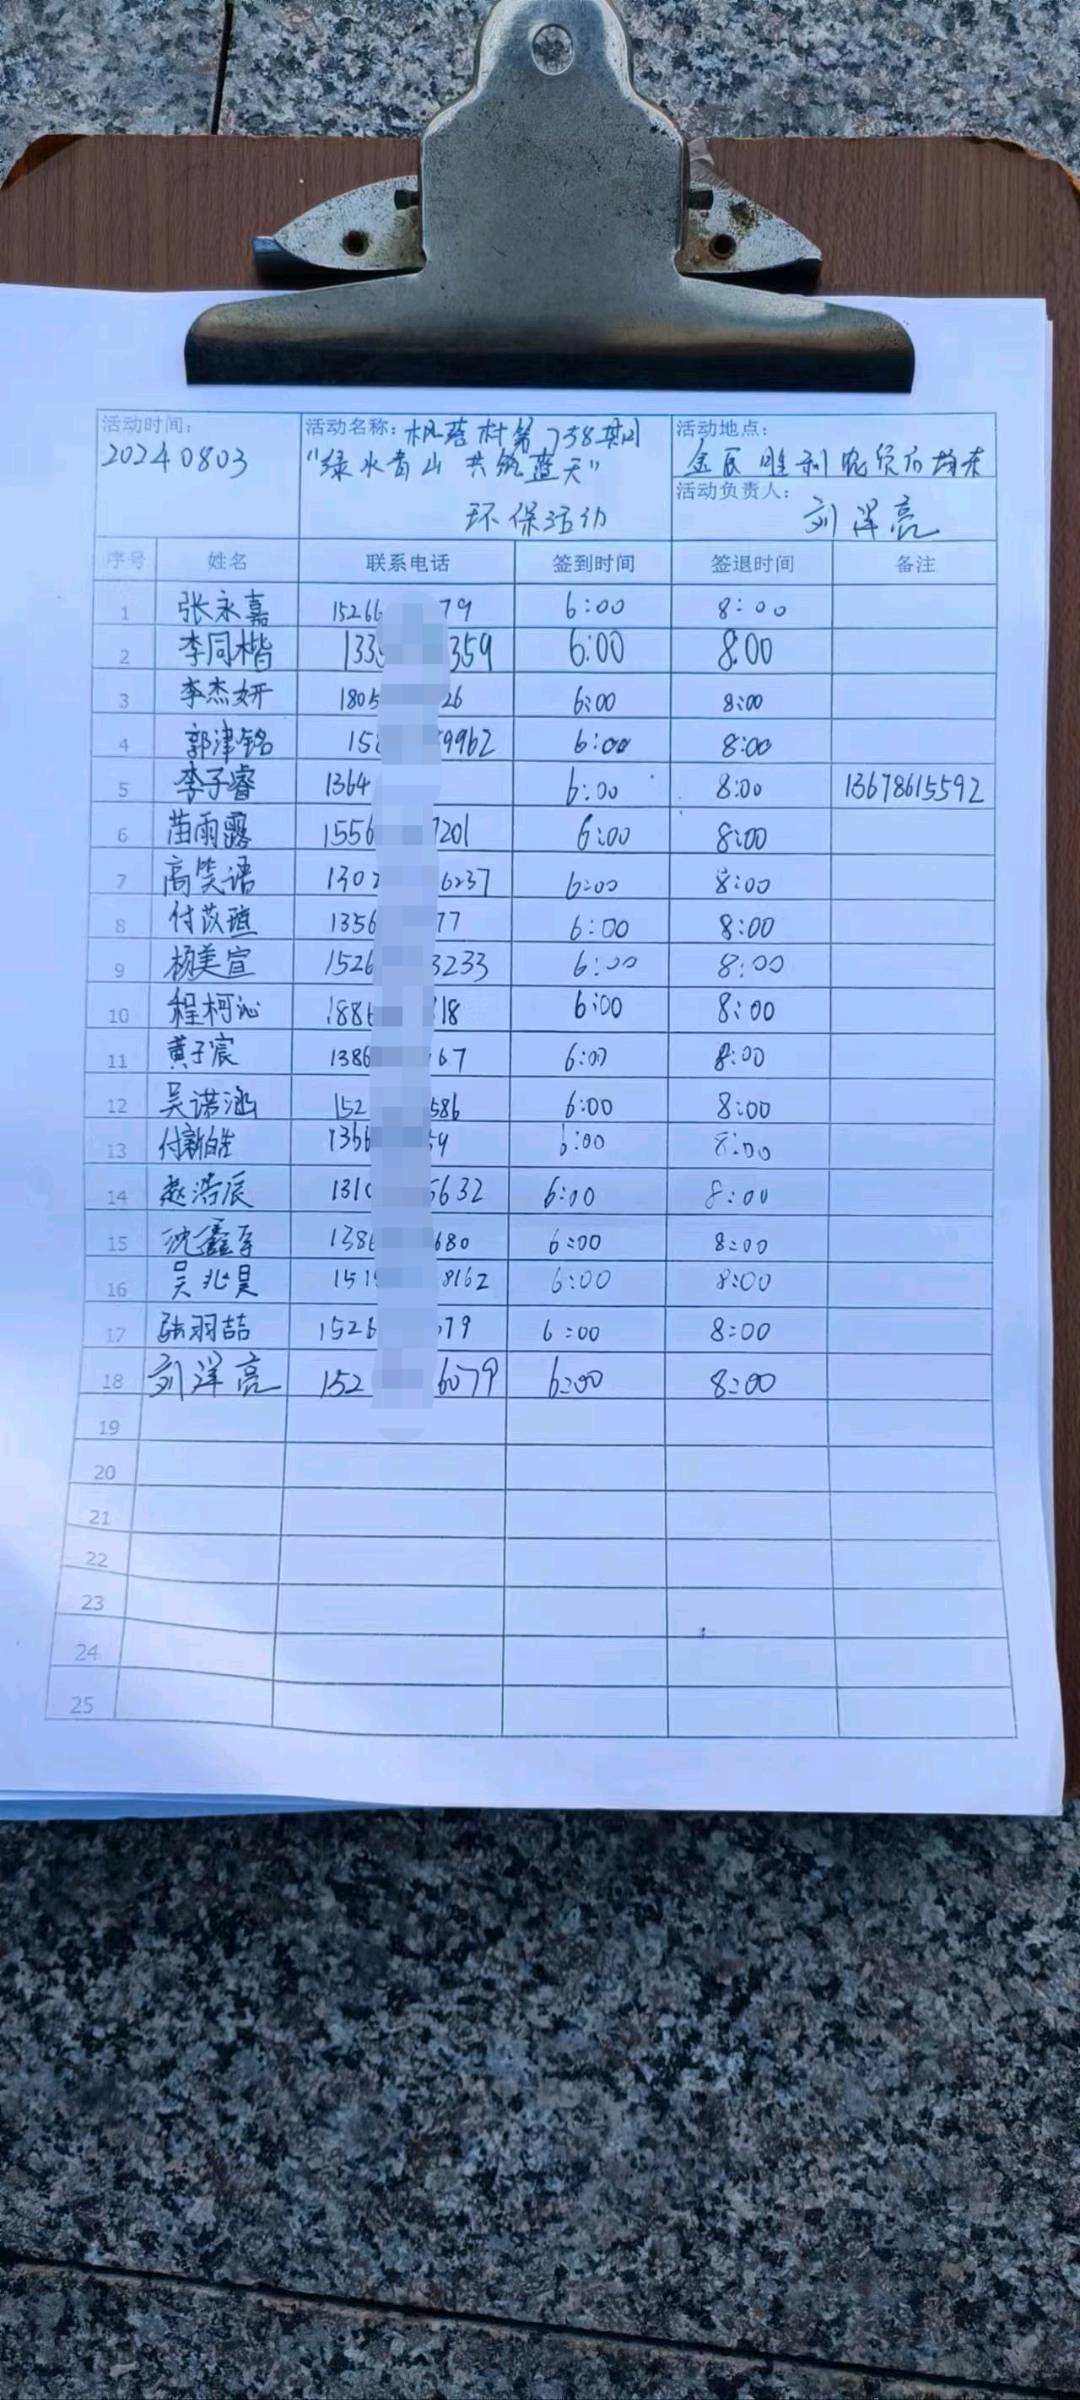 活动时间：
20240803
活动名称：枫荷村第738期
"绿水青山 共筑蓝天"
环保活动
活动地点：
金辰胜利农贸
活动负责人：
刘洋亮
序号 姓名 联系电话 签到时间 签退时间 备注
1 张永嘉 15266 79 6:00 8:00
2 李同楷 133 359 6:00 8:00
3 李杰妍 1805 26 6:00 8:00
4 郭津铭 15 9962 6:00 8:00
5 李子睿 1364 6:00 8:00 13678615592
6 苗雨露 1556 7201 6:00 8:00
7 高笑语 1302 6237 6:00 8:00
8 付苡瑄 1356 77 6:00 8:00
9 杨美宣 1526 3233 6:00 8:00
10 程柯沁 1886 18 6:00 8:00
11 黄子宸 1386 67 6:00 8:00
12 吴诺涵 152 586 6:00 8:00
13 付新皓 1366 59 6:00 8:00
14 赵浩辰 1310 5632 6:00 8:00
15 沈鑫 1386 680 6:00 8:00
16 吴兆昊 151 8162 6:00 8:00
17 张羽喆 1526 679 6:00 8:00
18 刘洋亮 152 6079 6:00 8:00
19
20
21
22
23
24
25